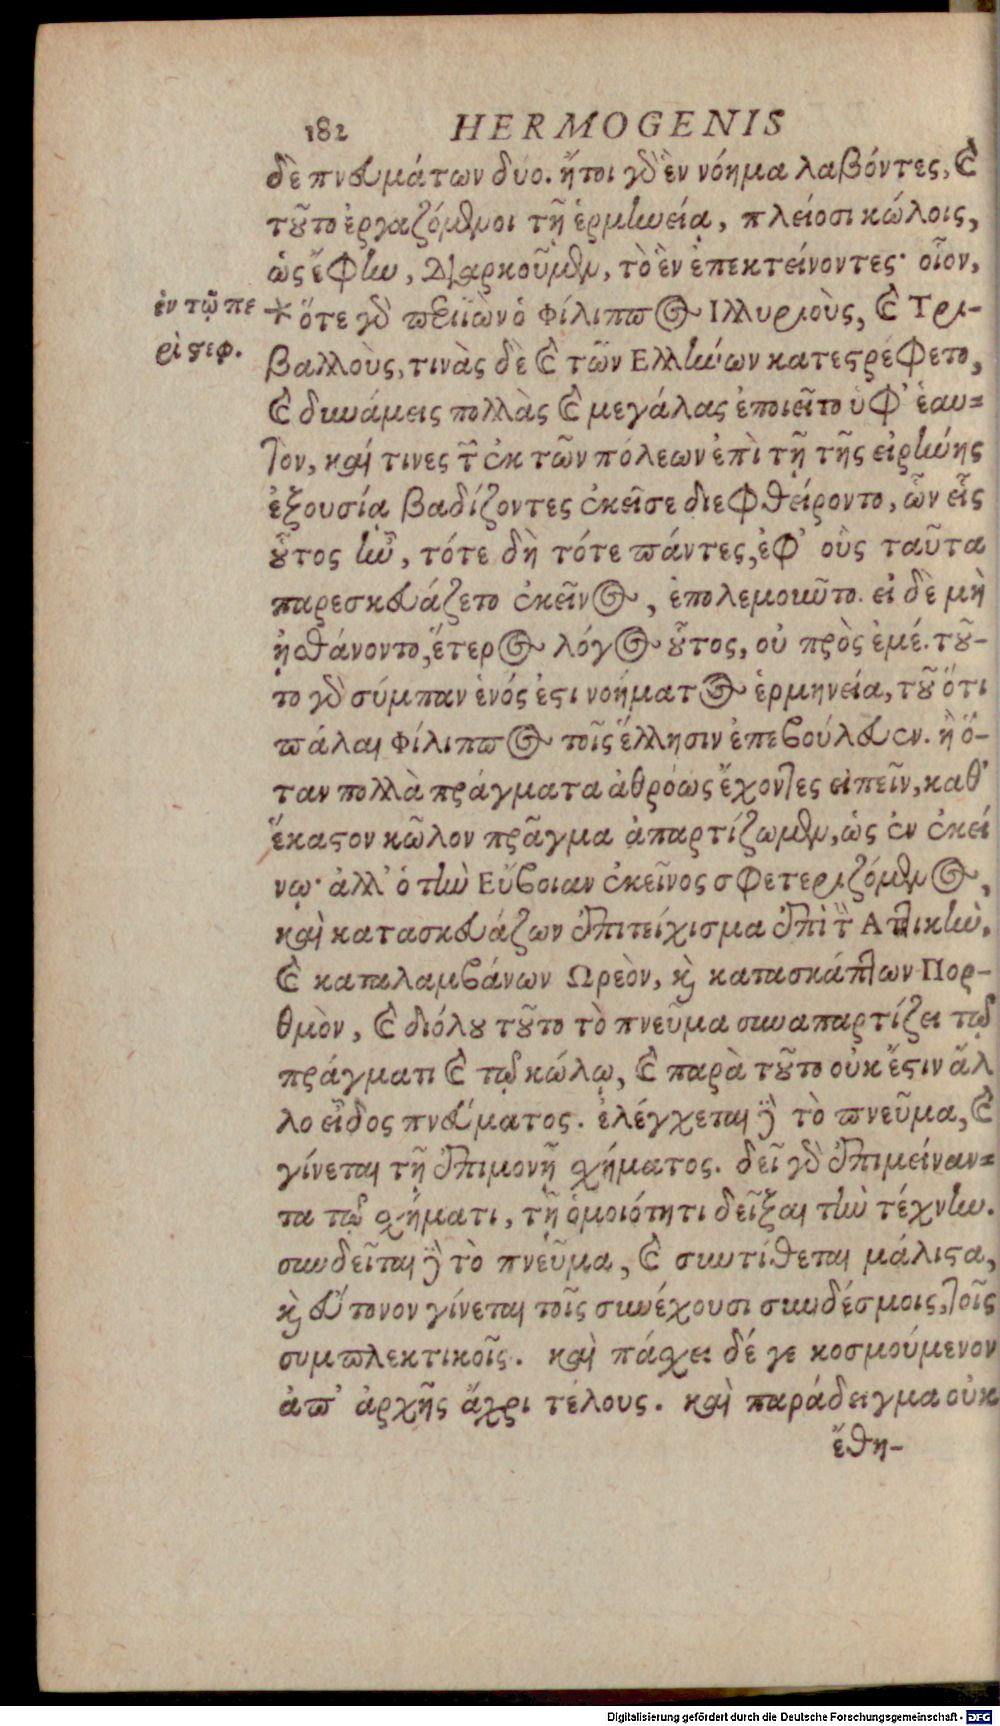 182 HERMOGENIS
δὲ πνευμάτων δύο. ἤτοι γὸ ἓν νόημα λαβόντες, καὶ
τοῦτο ἐργαζόμενοι τῇ ἑρμηνείᾳ, πλείοσι κώλοις,
ὡς ἔφην, διαρκοῦμεν, τὸ ἓν ἐπεκτείνοντες· οἷον,
ἐν τῷ πε
ρὶ στεφ.
* ὅτε γὸ περιϊὼν ὁ Φίλιππος Ιλλυριοὺς, καὶ Τρι-
βαλλοὺς, τινὰς δὲ καὶ τῶν Ελλήνων κατεστρέφετο,
καὶ δυνάμεις πολλὰς καὶ μεγάλας ἐποιεῖτο ὑφ' ἑαυ=
τὸν, καί τινες τῶν ἐκ τῶν πόλεων ἐπὶ τῇ τῆς εἰρήνης
ἐξουσίᾳ βαδίζοντες ἐκεῖσε διεφθείροντο, ὧν εἷς
οὗτος ἦν, τότε δὴ τότε πάντες, ἐφ' οὓς ταῦτα
παρεσκευάζετο ἐκεῖνος, ἐπολεμοῦντο. εἰ δὲ μὴ
ᾐσθάνοντο, ἕτερος λόγος οὗτος, οὐ πρὸς ἐμέ. τοῦ-
το γὸ σύμπαν ἑνός ἐστι νοήματος ἑρμηνεία, τοῦ ὅτι
πάλαι Φίλιππος τοῖς ἕλλησιν ἐπεβούλευεν. ἢ ὅ-
ταν πολλὰ πράγματα ἀθρόως ἔχοντες εἰπεῖν, καθ'
ἕκαστον κῶλον πρᾶγμα ἀπαρτίζωμεν, ὡς ἐν ἐκεί
νῳ· ἀλλ' ὁ τὴν Εὔβοιαν ἐκεῖνος σφετεριζόμενος,
καὶ κατασκευάζων ἐπιτείχισμα ἐπὶ τὴν Ατικὴν,
καὶ καταλαμβάνων Ωρεὸν, καὶ κατασκάπτων Πορ-
θμὸν, καὶ διόλου τοῦτο τὸ πνεῦμα συναπαρτίζει τῷ
πράγματι καὶ τῷ κώλῳ, καὶ παρὰ τοῦτο οὐκ ἔστιν ἄλ
λο εἶδος πνεύματος. ἐλέγχεται δὲ τὸ πνεῦμα, καὶ
γίνεται τῇ ἐπιμονῇ σχήματος. δεῖ γὸ ἐπιμείναν=
τα τῷ σχήματι, τῇ ὁμοιότητι δεῖξαι τὴν τέχνην.
συνδεῖται δὲ τὸ πνεῦμα, καὶ συντίθεται μάλιστα,
καὶ εὔτονον γίνεται τοῖς συνέχουσι συνδέσμοις, τοῖς
συμπλεκτικοῖς. καὶ πάσχει δέ γε κοσμούμενον
ἀπ' ἀρχῆς ἄχρι τέλους. καὶ παράδειγμα οὐκ
ἔθη-
Digitalisierung gefördert durch die Deutsche Forschungsgemeinschaft - DFG